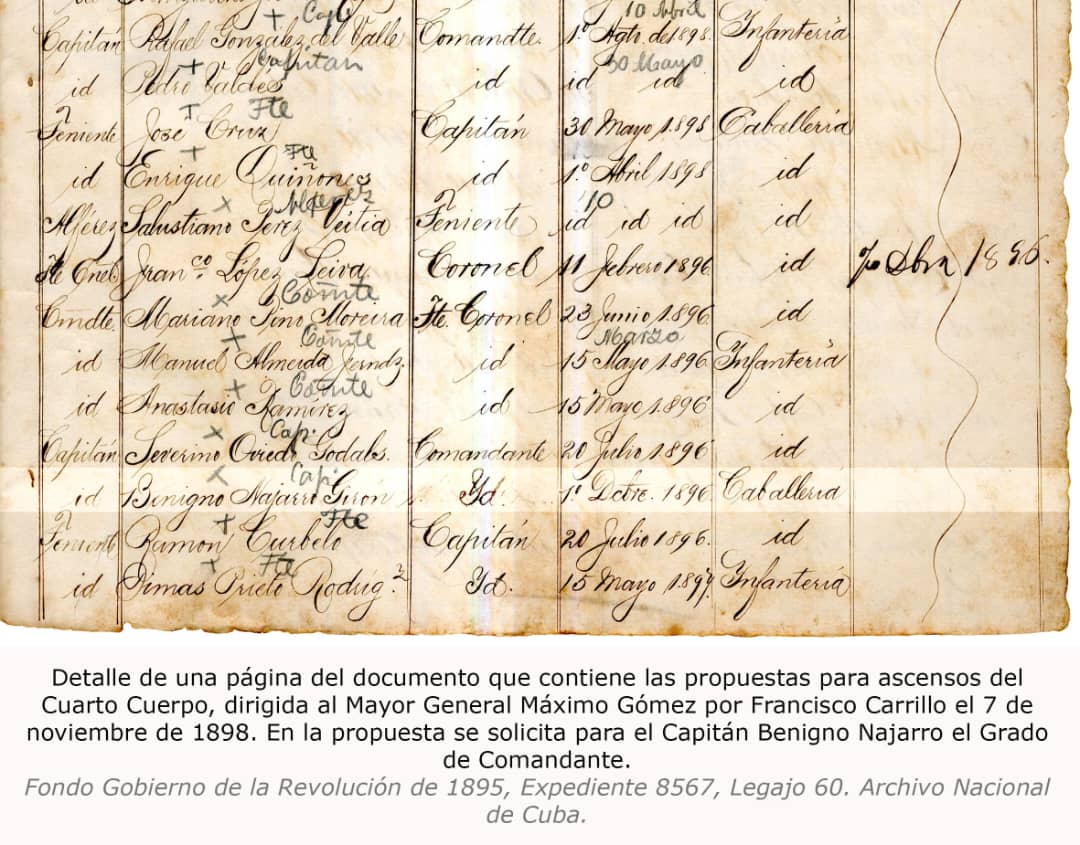 10 Abril
+ Capn
Capitán Rafael González del Valle Comandte. 1º Agto. de 1898. Infantería
+ Capitan 30 Mayo
id Pedro Valdés id id id id
+ Tte
Teniente José Cruz Capitán 30 Mayo 1898 Caballería
+ Tte
id Enrique Quiñones id 1º Abril 1898 id
x Alferez 10
Alférez Salustiano Pérez Veitia Teniente id id id id
Tte Cnel Franco. López Leiva Coronel 11 febrero 1896 id 1896.
x Comte
Cmdte. Mariano Pino Moreira Tte. Coronel 23 Junio 1896 id
+ Comte Marzo
id Manuel Almeida Ferndz. id 15 Mayo 1896 Infantería
+ Comte
id Anastasio Ramírez id 15 Mayo 1896 id
x Cap.
Capitán Severino Oviedo Comandante 20 Julio 1896 id
x Cap.
id Benigno Najarro Girón Yd. 1º Dcbre. 1896 Caballería
+ Tte
Tenient Ramon Curbelo Capitán 20 Julio 1896. id
+ Tte
id Dimas Prieto Rodrig.z Yd. 15 Mayo 1897 Infantería
Detalle de una página del documento que contiene las propuestas para ascensos del
Cuarto Cuerpo, dirigida al Mayor General Máximo Gómez por Francisco Carrillo el 7 de
noviembre de 1898. En la propuesta se solicita para el Capitán Benigno Najarro el Grado
de Comandante.
Fondo Gobierno de la Revolución de 1895, Expediente 8567, Legajo 60. Archivo Nacional
de Cuba.